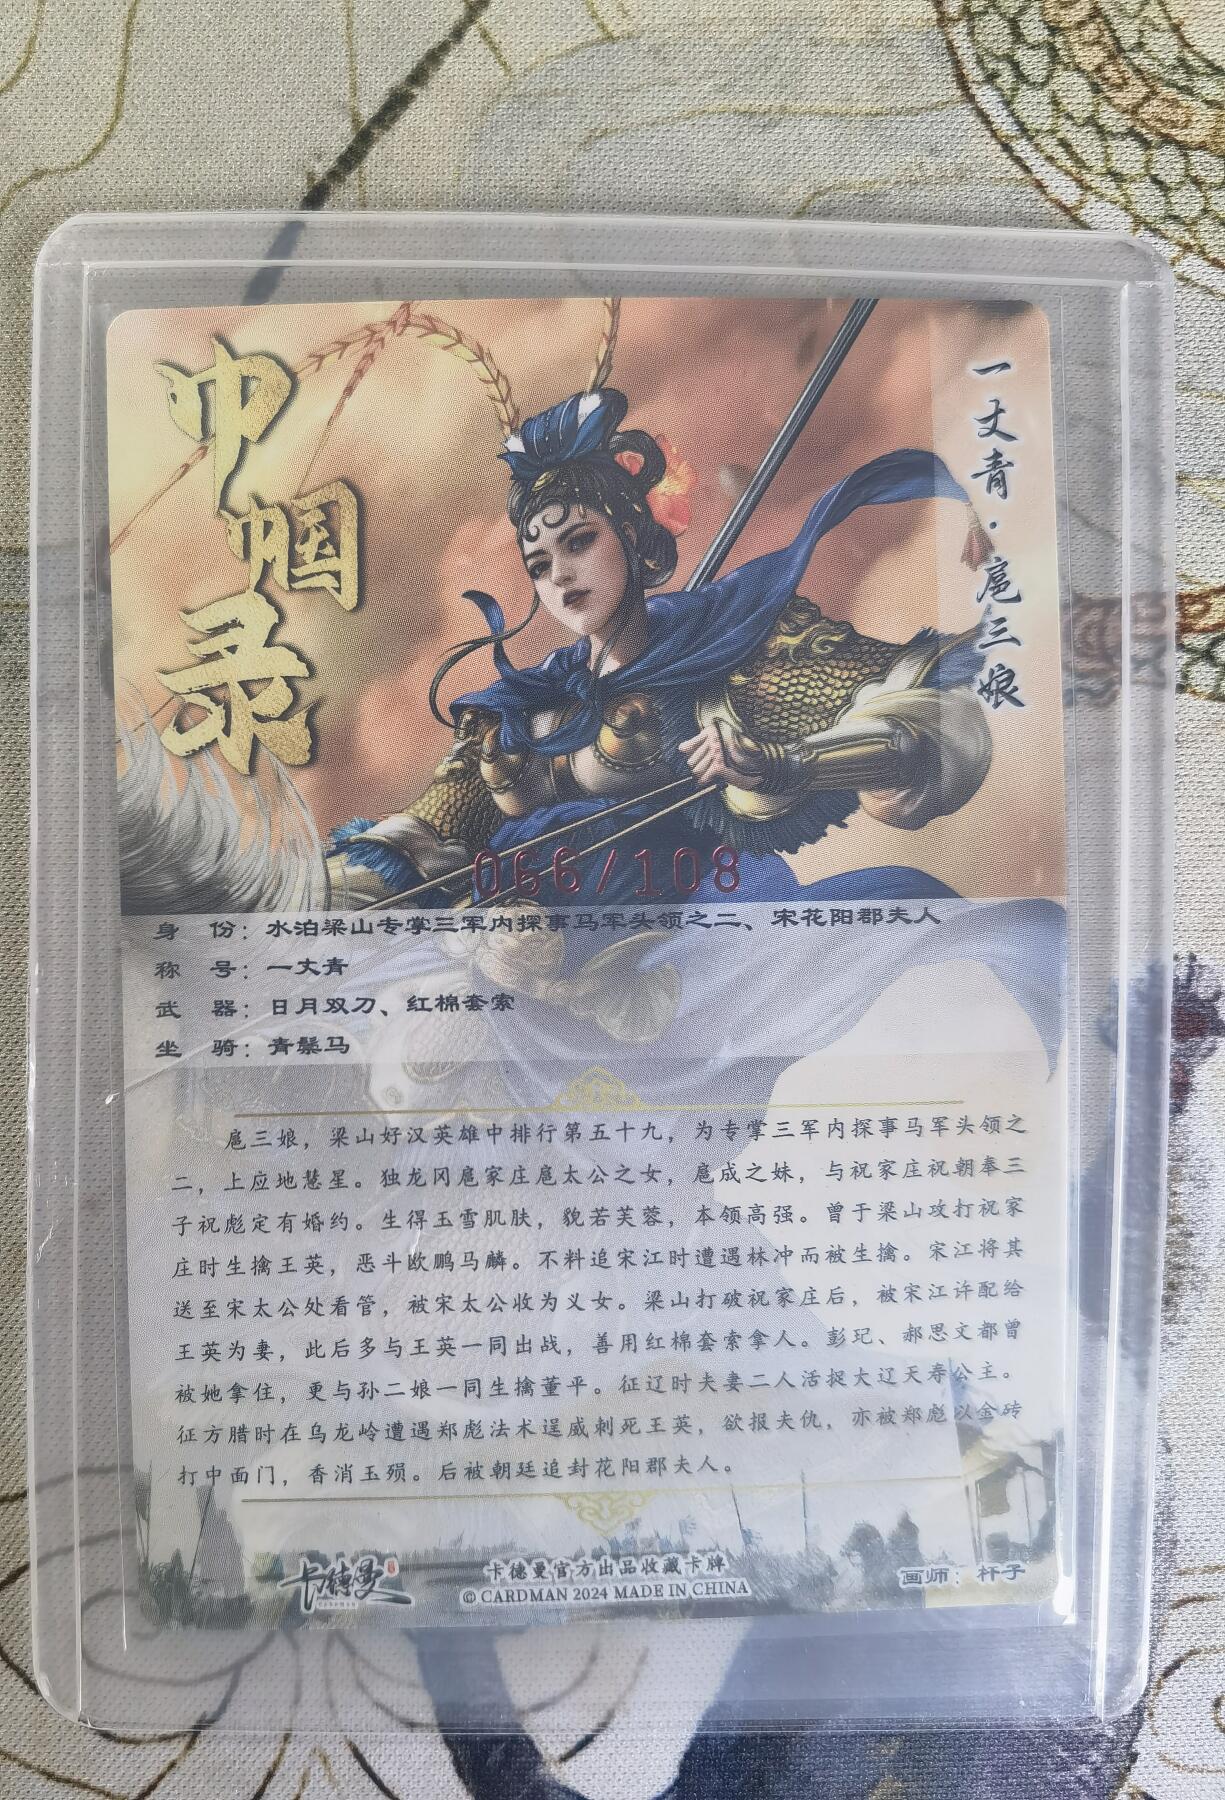 巾帼录
一丈青·扈三娘
066/108
身　份：水泊梁山专掌三军内探事马军头领之二、宋花阳郡夫人
称　号：一丈青
武　器：日月双刀、红棉套索
坐　骑：青鬃马
扈三娘，梁山好汉英雄中排行第五十九，为专掌三军内探事马军头领之
二，上应地慧星。独龙冈扈家庄扈太公之女，扈成之妹，与祝家庄祝朝奉三
子祝彪定有婚约。生得玉雪肌肤，貌若芙蓉，本领高强。曾于梁山攻打祝家
庄时生擒王英，恶斗欧鹏马麟。不料追宋江时遭遇林冲而被生擒。宋江将其
送至宋太公处看管，被宋太公收为义女。梁山打破祝家庄后，被宋江许配给
王英为妻，此后多与王英一同出战，善用红棉套索拿人。彭玘、郝思文都曾
被她拿住，更与孙二娘一同生擒董平。征辽时夫妻二人活捉大辽天寿公主。
征方腊时在乌龙岭遭遇郑彪法术逞威刺死王英，欲报夫仇，亦被郑彪以金砖
打中面门，香消玉殒。后被朝廷追封花阳郡夫人。
卡德曼
CARDMAN
卡德曼官方出品收藏卡牌
© CARDMAN 2024 MADE IN CHINA
画师：杆子